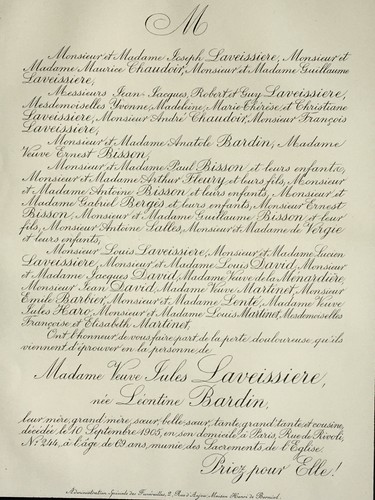 M
Monsieur et Madame Joseph Laveissière, Monsieur et
Madame Maurice Chaudoir, Monsieur et Madame Guillaume
Laveissière,
Messieurs Jean-Jacques, Robert et Guy Laveissière,
Mesdemoiselles Yvonne, Madeleine, Marie-Thérèse et Christiane
Laveissière, Monsieur André Chaudoir, Monsieur François
Laveissière,
Monsieur et Madame Anatole Bardin, Madame
Veuve Ernest Bisson,
Monsieur et Madame Paul Bisson et leurs enfants,
Monsieur et Madame Arthur Fleury et leurs fils, Monsieur
et Madame Antoine Bisson et leurs enfants, Monsieur et
Madame Gabriel Bergès et leurs enfants, Monsieur Ernest
Bisson, Monsieur et Madame Guillaume Bisson et leur
fils, Monsieur Antoine Lallès, Monsieur et Madame de Vergie
et leurs enfants,
Monsieur Louis Laveissière, Monsieur et Madame Lucien
Laveissière, Monsieur et Madame Louis David, Monsieur
et Madame Jacques David, Madame Veuve de la Ménardière,
Monsieur Jean David, Madame Veuve Martinet, Monsieur
Emile Barbier, Monsieur et Madame Lenté, Madame Veuve
Jules Haro, Monsieur et Madame Louis Martinet, Mesdemoiselles
Françoise et Elisabeth Martinet,
Ont l'honneur de vous faire part de la perte douloureuse qu'ils
viennent d'éprouver en la personne de
Madame Veuve Jules Laveissière,
née Léontine Bardin,
leur mère, grand'mère, sœur, belle-sœur, tante, grand'tante et cousine,
décédée le 10 Septembre 1905, en son domicile à Paris, Rue de Rivoli,
N° 244, à l'âge de 69 ans, munie des Sacrements de l'Eglise.
Priez pour Elle!
Administration Spéciale des Funérailles, 2, Rue Maison Henri de Borniol.